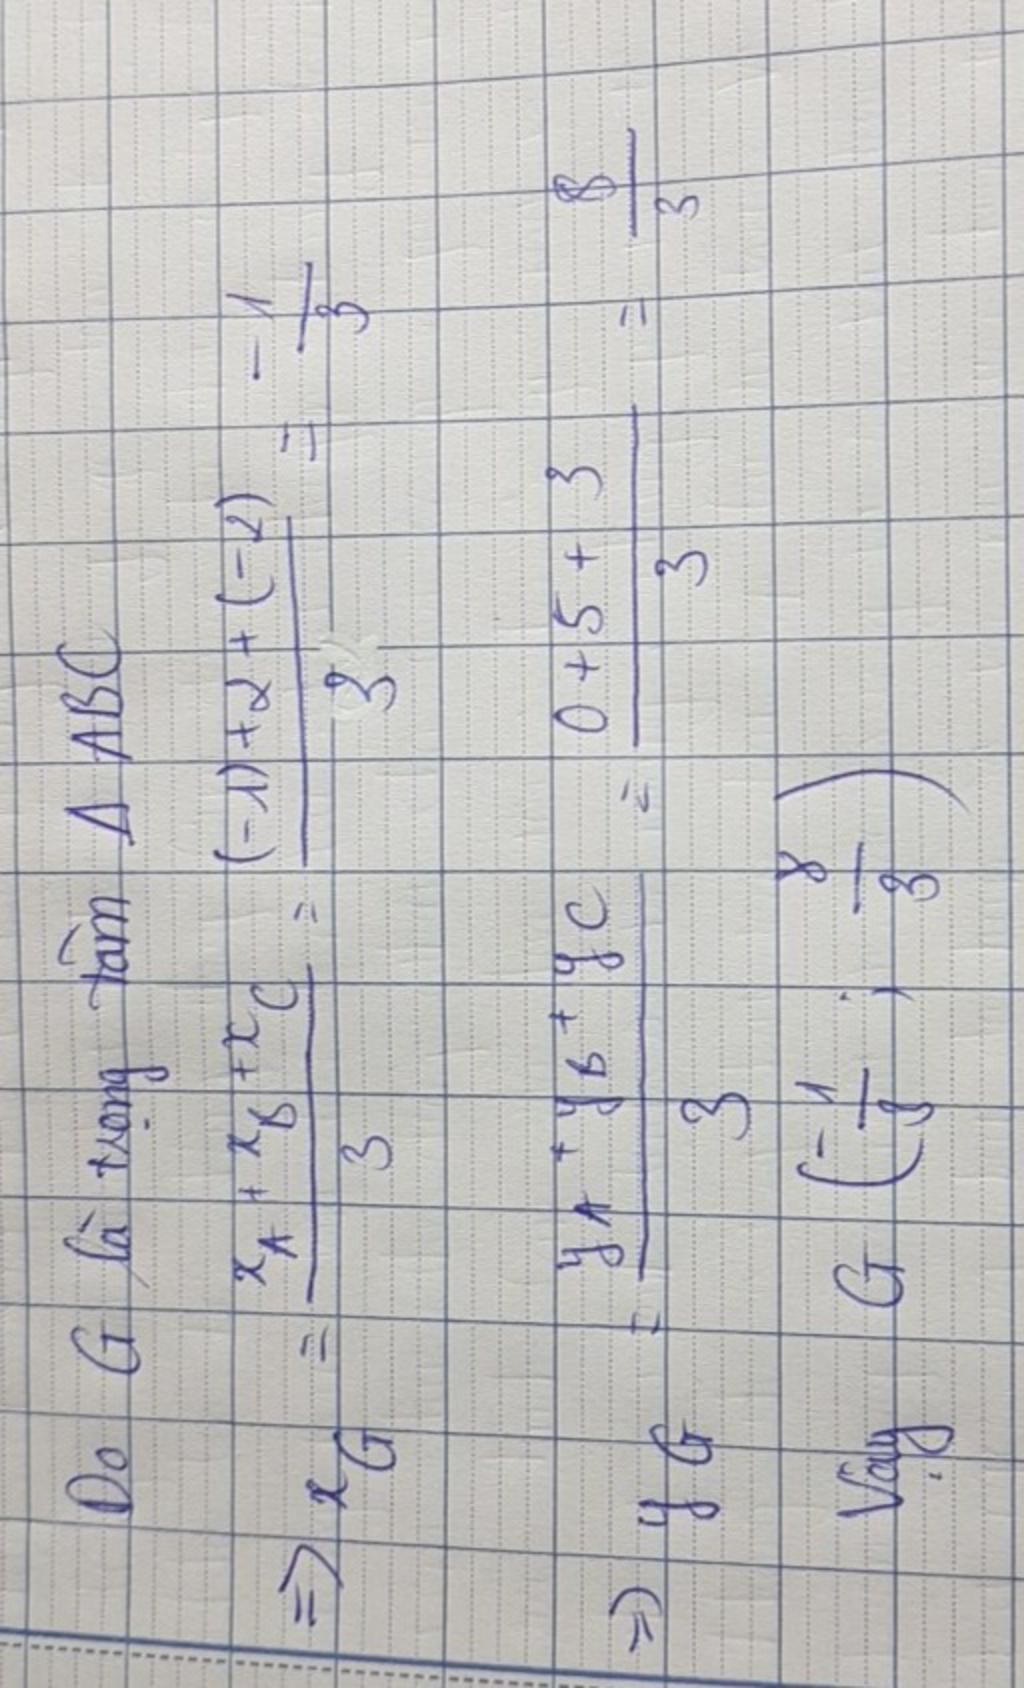 Do G là trọng tâm Δ ABC
=> x_G = (x_A + x_B + x_C)/3 = ((-1)+2+(-2))/3 = -1/3
=> y_G = (y_A + y_B + y_C)/3 = (0+5+3)/3 = 8/3
Vậy G (-1/3 ; 8/3)